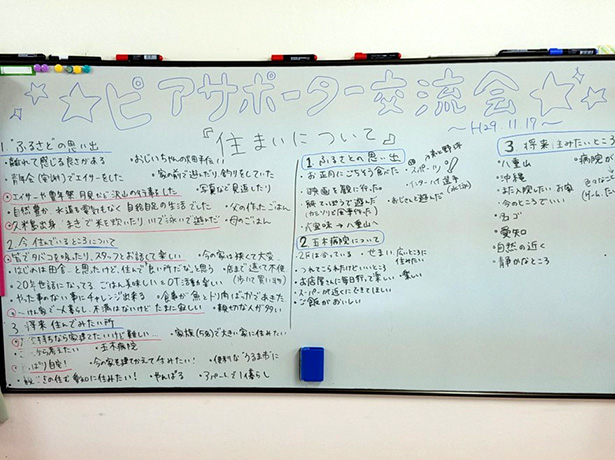 ☆ピアサポーター交流会☆
～H29.11.17～
『住まいについて』
1. ふるさとの思い出
・離れて感じる良さがある ・おじいちゃんの畑
・青年会(字)でエイサーをした ・家の前で遊んだり釣りをしていた
・エイサーや豊年祭 沢山の行事をした ・写真など見返したり
・自然豊か 水道も電気もなく自給自足の生活でした ・父の作ったごはん
・久米島出身 まきで米を炊いたり、川で泳いで遊んだ ・母のごはん
2. 今住んでいるところについて
・家でタバコを吸ったり、スタッフとお話して楽しい ・今の家は狭くて大変
・はじめは田舎…と思ったけど、住んで「良い所だな」と思う ・店まで遠くて不便
・20年世話になってる ごはん美味しいしOT活動も楽しい
・やった事のない事にチャレンジ出来る ・食事が魚とトリ肉ばっかであきた
・一人暮らし 不満はないけどたまに寂しい ・親切な人が多い
3. 将来住んでみたい所
・お金持ちなら家建てたいけど難しい… ・家族(5名)で大きい家に住みたい
から考えたい ・玉木病院
ぱり自宅! ・今の家を建てかえて住みたい! ・便利な"うるま市"に
の住む 愛知に住みたい! ・やんばる ・アパートで1人暮らし
1 ふるさとの思い出
・お正月にごちそう食べた ・スポーツ
・映画を観に行った ・インターハイ選手
・おじぃと遊んだ
→八重山へ
2 玉木病院について
・2Fは合っている ・せまい、広いところに住みたい
・つれてこられたけどいいところ
・お店屋さんに毎日行って楽しい ・楽しい
・スーパーが近くにできてほしい
・ご飯がおいしい
3 将来住みたいところ
・八重山 ・病院が
・沖縄
・また入院したい、お家
・今のところでいい
・名ゴ
・愛知
・自然の近く
・静かなところ